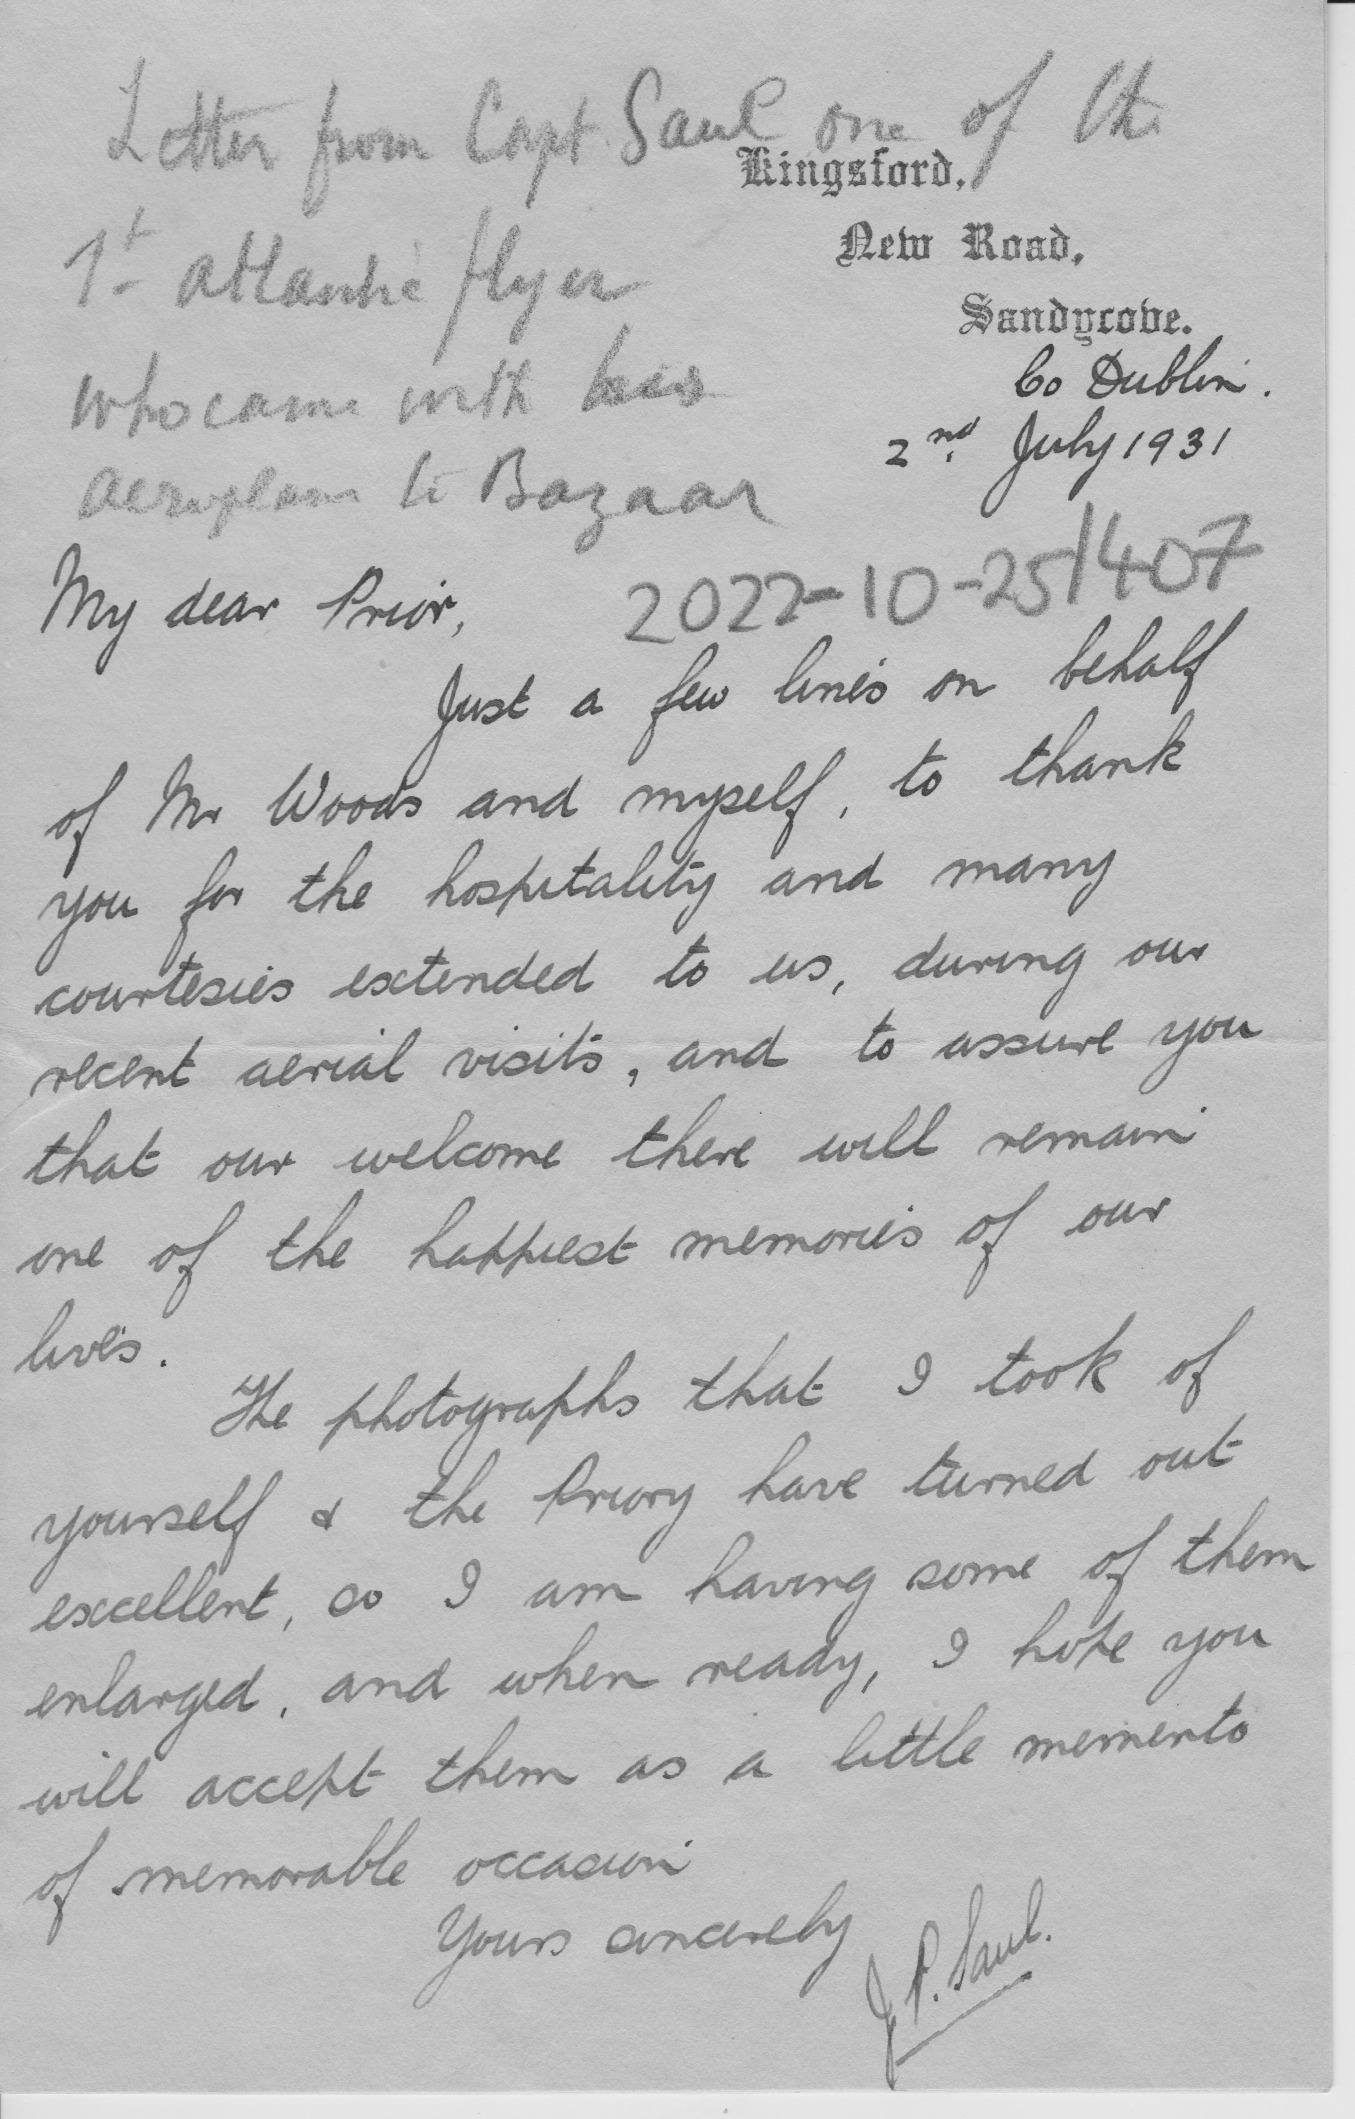 Letter from Capt. Saul one of the
1st atlantic flyer
who came with his
aeroplane to Bazaar
Kingsford,
New Road,
Sandycove.
Co Dublin.
2nd. July 1931
2022-10-25/407
My dear Prior,
Just a few lines on behalf
of Mr Woods and myself, to thank
you for the hospitality and many
courtesies extended to us, during our
recent aerial visits, and to assure you
that our welcome there will remain
one of the happiest memories of our
lives.
The photographs that I took of
yourself & the Priory have turned out
excellent, so I am having some of them
enlarged, and when ready, I hope you
will accept them as a little memento
of memorable occasion
Yours sincerely
J. P. Saul.